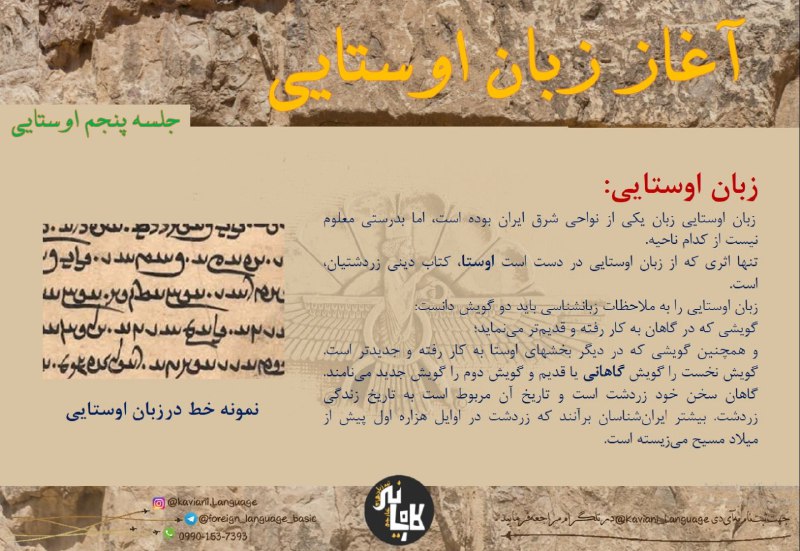 آغاز زبان اوستایی
جلسه پنجم اوستایی
زبان اوستایی:
زبان اوستایی زبان یکی از نواحی شرق ایران بوده است، اما بدرستی معلوم
نیست از کدام ناحیه.
تنها اثری که از زبان اوستایی در دست است اوستا، کتاب دینی زردشتیان،
است.
زبان اوستایی را به ملاحظات زبانشناسی باید دو گویش دانست:
گویشی که در گاهان به کار رفته و قدیم‌تر می‌نماید؛
و همچنین گویشی که در دیگر بخشهای اوستا به کار رفته و جدیدتر است.
گویش نخست را گویش گاهانی یا قدیم و گویش دوم را گویش جدید می‌نامند.
گاهان سخن خود زردشت است و تاریخ آن مربوط است به تاریخ زندگی
زردشت. بیشتر ایران‌شناسان برآنند که زردشت در اوایل هزاره اول پیش از
میلاد مسیح می‌زیسته است.
نمونه خط درزبان اوستایی
@kaviani_Language
@foreign_language_basic
0990-153-7393
جهت ثبت نام به آی دی @kaviani_Language در تلگرام مراجعه فرمایید